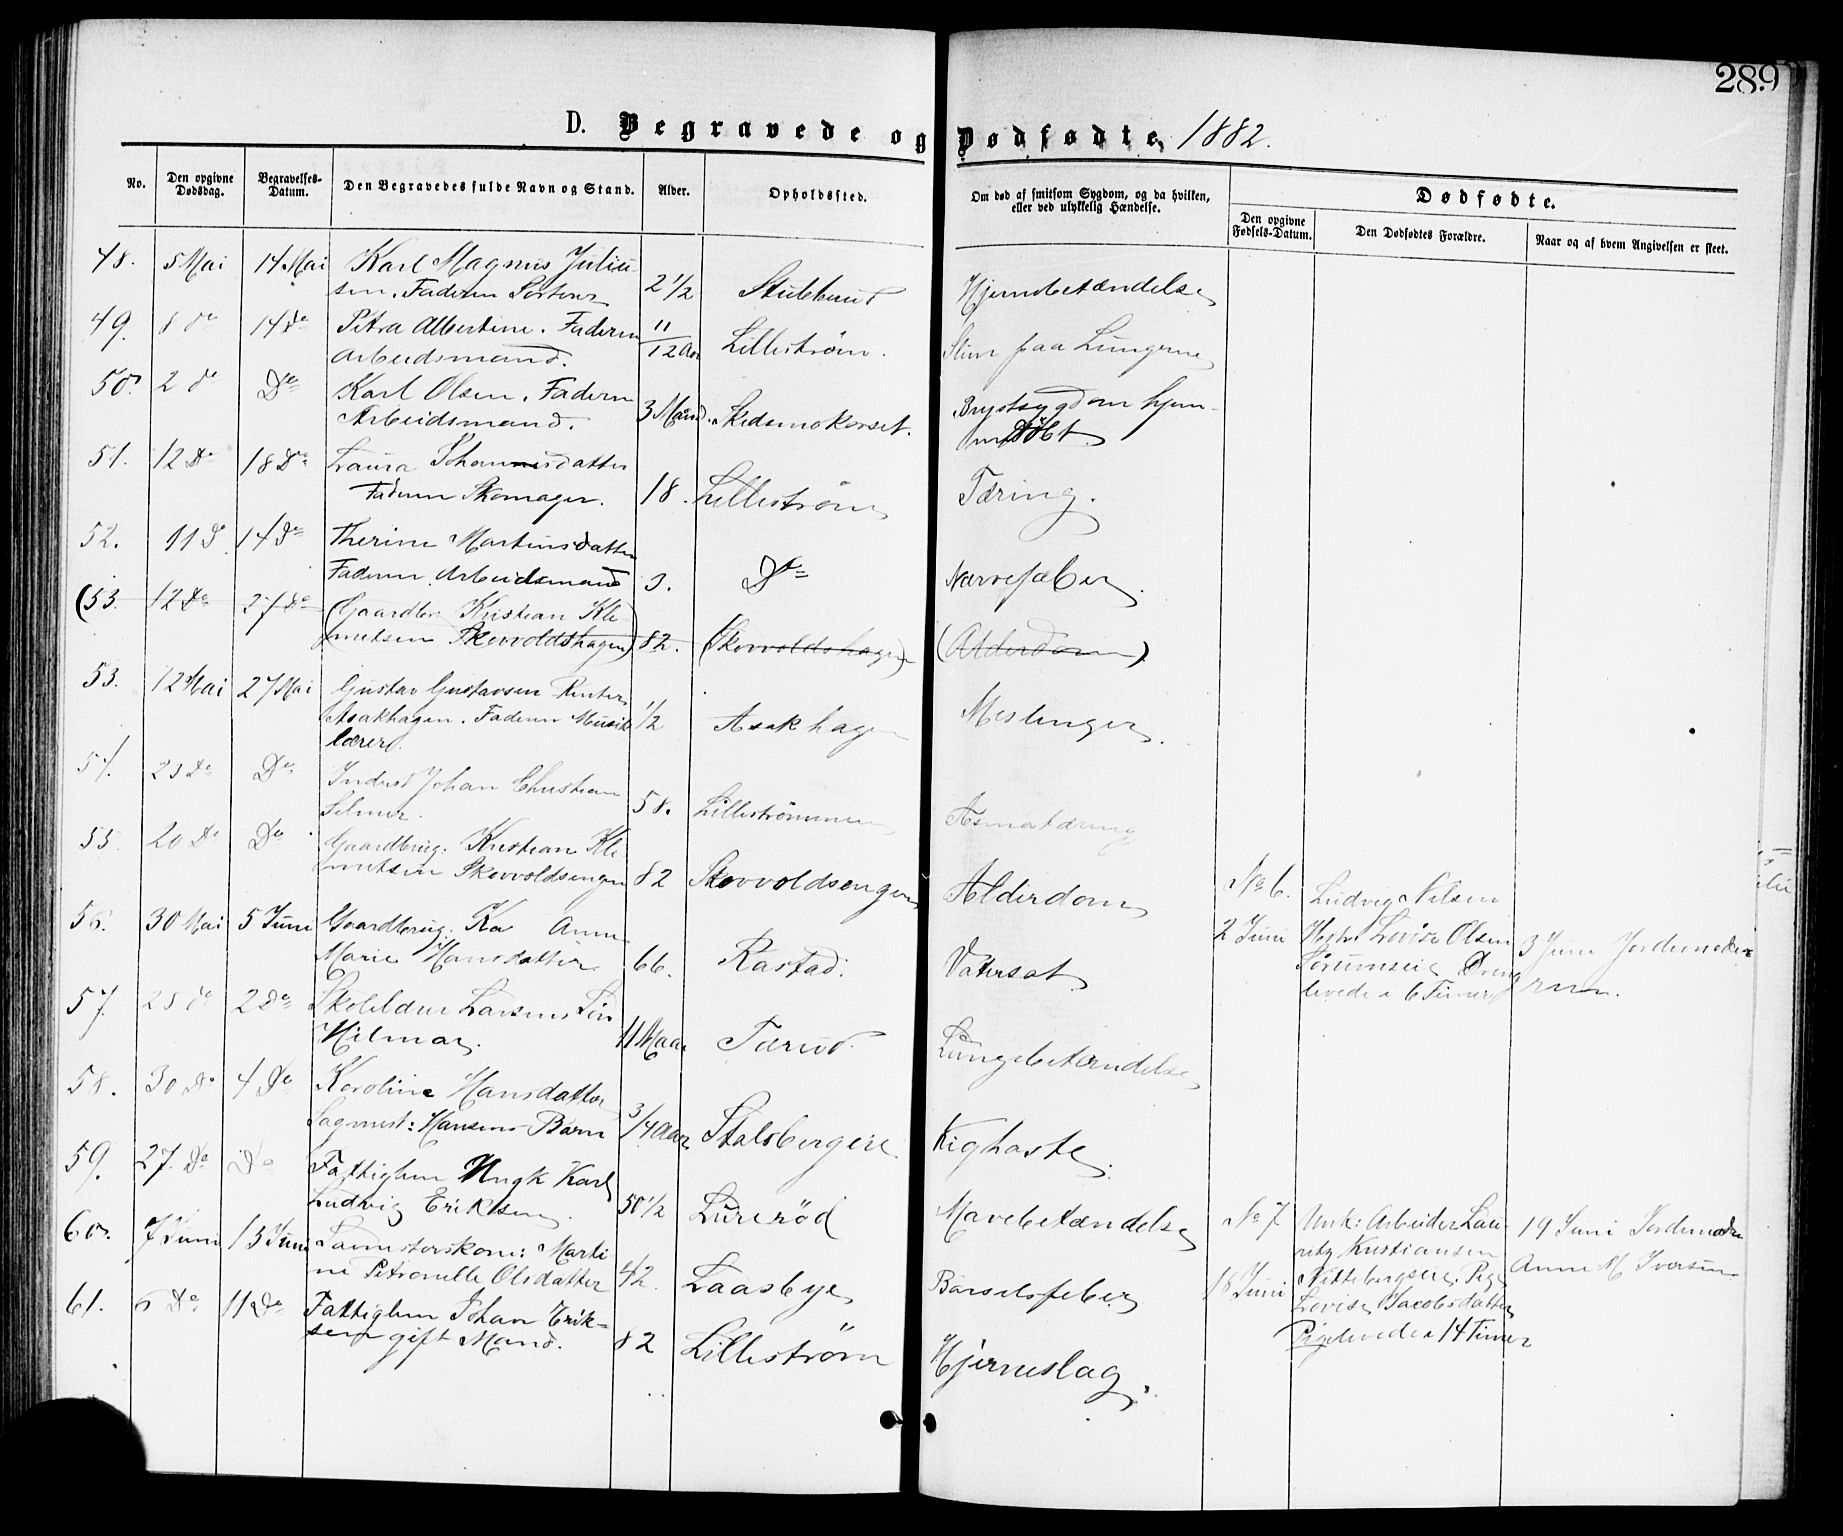 289
D. Begravede og Dødfødte, 1882.
No.
Den opgivne Dødsdag.
Begravelses-Datum.
Den Begravedes fulde Navn og Stand.
Alder.
Opholdssted.
Om død af smitsom Sygdom, og da hvilken, eller ved ulykkelig Hændelse.
Dødfødte.
Den opgivne Fødsels-Datum.
Den Dødfødtes Forældre.
Naar og af hvem Angivelsen er skeet.
48. 5 Mai 14 Mai Karl Magnus Juliu-
sen. Faderen 2 1/2 Hjernebetændelse
49. 8 do 14 Do Petra Albertine. Faderen
Arbeidsmand. 11/12 Aar Lillestrøm. Slim paa Lungerne
50. 2 do Do Karl Olsen. Faderen
Arbeidsmand. 3 Maand. Skedsmokorset. Brystsygdom hjem-
medøbt
51. 12 Do 18 Do Laura Johannesdatter
Faderen Skomager. 18. Lillestrøm Tæring.
52. 11 D 14 Do Therine Martinsdatter
Faderen Arbeidsmand 3. Do Nervefeber
(53. 12 Do 27 Do (Gaardbr: Kristian Kle
metsen Skovvoldshagen) 82. (Skovvoldshagen) (Alderdom)
53. 12 Mai 27 Mai Gustav Gustavsen
Asakhagen. Faderen Musik
lærer. 1/2 Asakhagen Meslinger.
54. 23 Do Do Johan Christian
Selmer. 58. Lillestrømmen
55. 20 Do Do Gaardbrug: Kristian Kle
metsen Skovvoldsengen 82 Skovvoldsengen Alderdom
56. 30 Mai 5 Juni Gaardbrug: Ko Anne
Marie Hansdatter 66. Rastad. Vatersot
57. 25 do 2 Do Larsens Søn
Hilmar. 11 Maan Tærud. Lungebetændelse
58. 30 Do 4 Do Karoline Hansdatter
Sagmest: Hansens Barn 3/4 Aar Stalsbergeie Kighoste
59. 27. Do Do Fattiglem Ungk Karl
Ludvig Eriksen 50 1/2 Lurerød Mavebetændelse
60. 7 Juni 13 Juni Marti
ne Petronelle Olsdatter 42. Laasbye Barselsfeber
61. 6 Do 11 Do Fattiglem Johan Erik-
sen gift Mand. 82 Lillestrøm Hjerneslag.
No 6. Ludvig Nilsen
2 Juni Hustr. Lovise Olsen
Sørumseie Dreng
levede i 6 Timer
3 Juni Jordemode-
ren.
No 7 Unk: Arbeider Lau
ritz Kristiansen
18 Juni Nittebergseie, Pige
Lovise Jacobsdatter
Pige levede i 14 Timer
19 Juni Jordemoder
Anne M Iversen